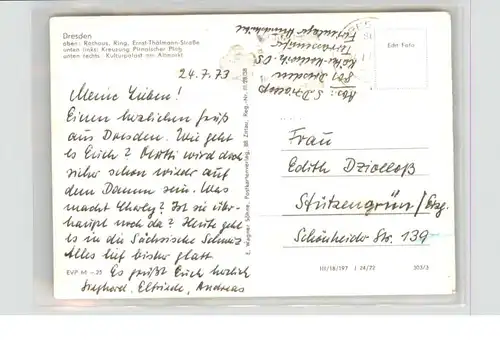 Dresden
oben: Rathaus, Ring, Ernst-Thälmann-Straße
unten links: Kreuzung Pirnaischer Platz
unten rechts: Kulturpalast am Altmarkt
24.7.73
Meine Lieben!
Einen herzlichen Gruß
aus Dresden. Wie geht
es Euch? Mutti wird doch
sicher schon wieder auf
dem Damm sein. Was
macht Charly? Ist sie über-
haupt noch da? Heute geht
es in die Sächsische Schweiz
Alles lief bisher glatt
Es grüßt Euch herzlich
Sieghard, Elfriede, Andreas
EVP M –,25
E. Wagner Söhne, Postkartenverlag, 88 Zittau, Reg.-Nr.
Abs.: S. Dziolloß
801 Dresden
Käthe-Kollwitz-OS
Terrassenufer
Echt Foto
Frau
Edith Dziolloß
Stützengrün/Erzg.
Schönheider Str. 139
III/18/197 J 24/72 303/3